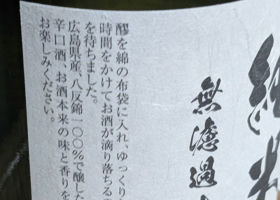 純米
無濾過
醪を綿の布袋に入れ、ゆっくり
時間をかけてお酒が滴り落ちる
を待ちました。
広島県産、八反錦一〇〇%で醸した
辛口酒、お酒本来の味と香りを
お楽しみください。